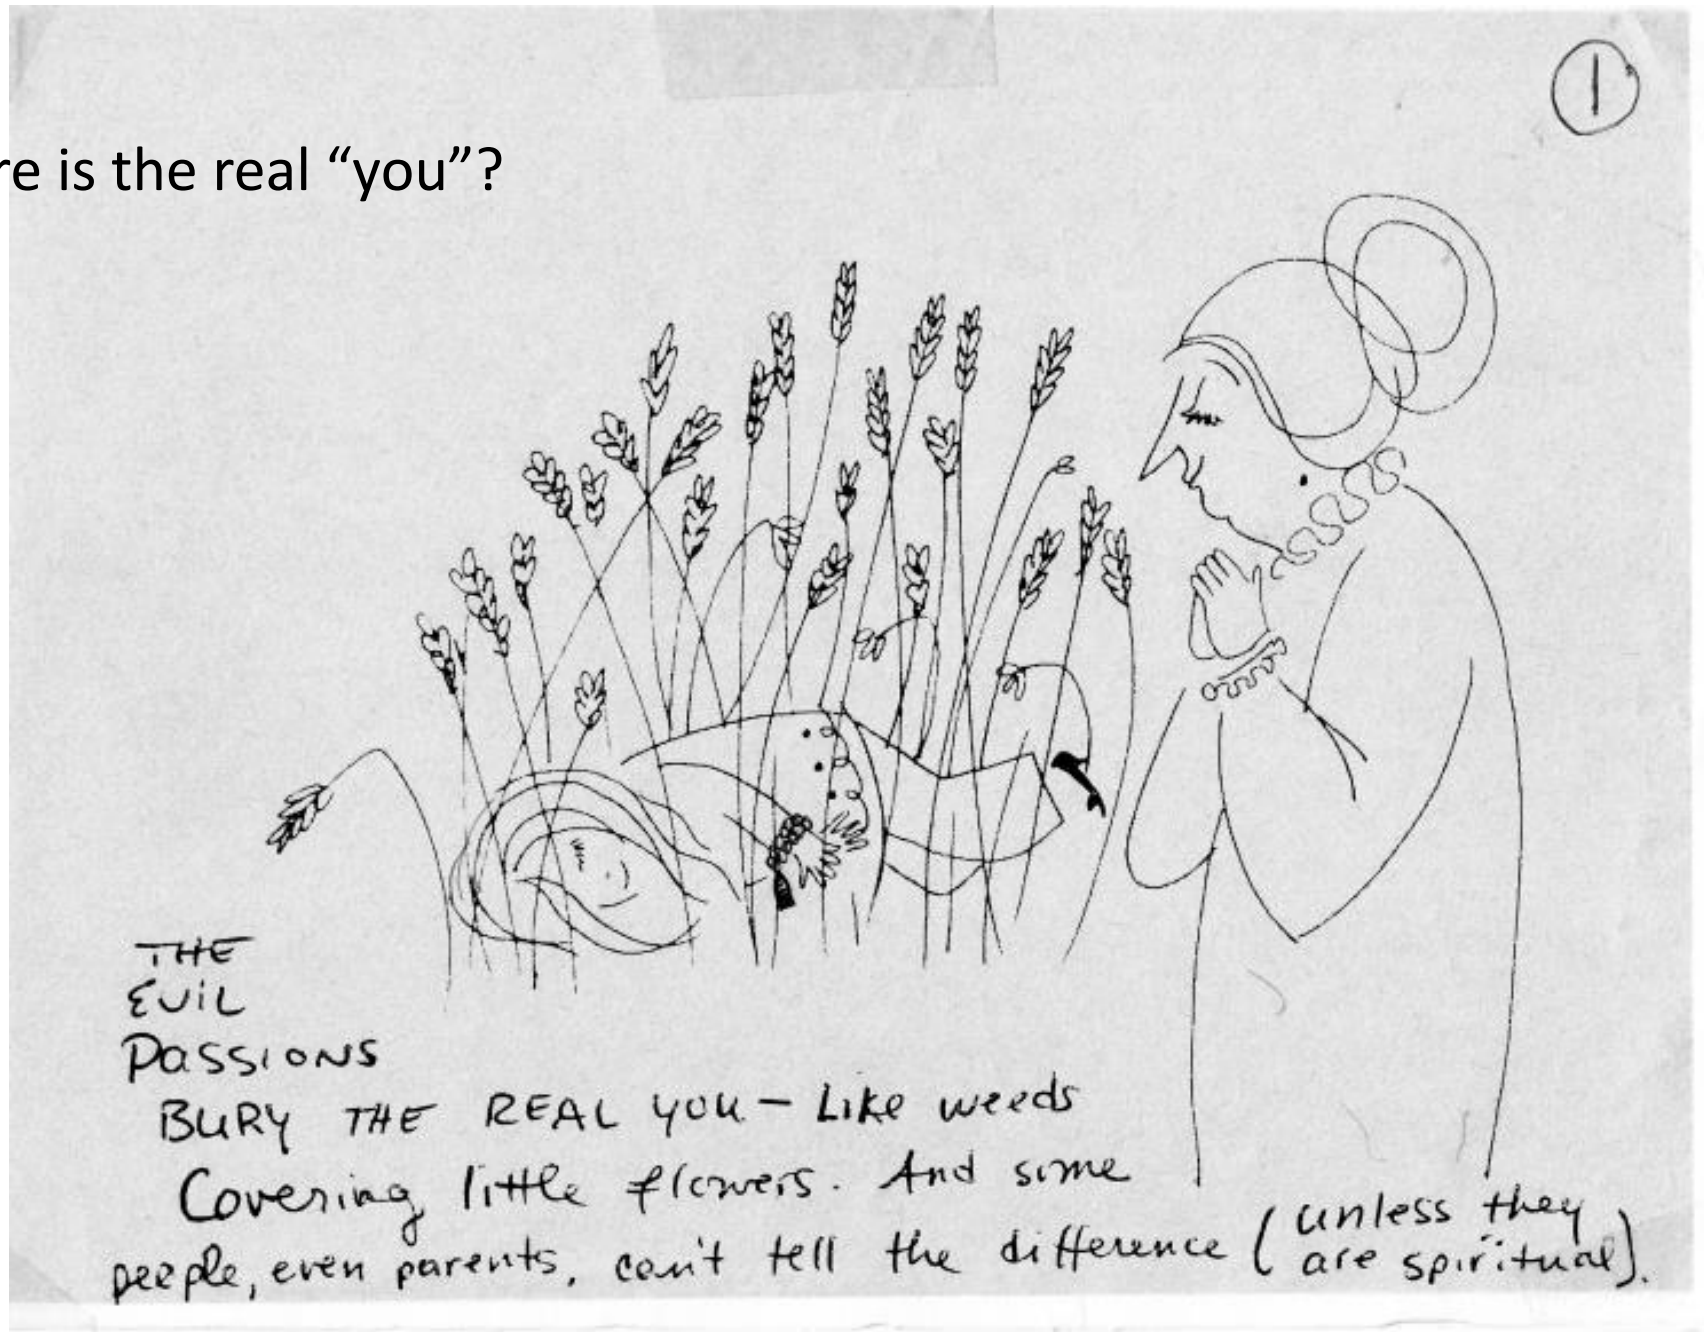 1
re is the real “you”?
THE
EVIL
PASSIONS
BURY THE REAL YOU – Like weeds
Covering little flowers. And some
people, even parents, can't tell the difference (unless they
are spiritual).